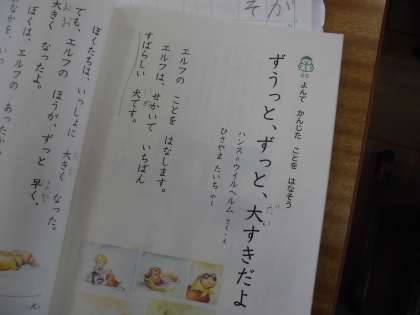 よんで かんじた ことを はなそう
ずうっと、ずっと、大すきだよ
ハンス＝ウイルヘルム さく・え
ひさやま たいち やく
エルフの ことを はなします。
エルフは、せかいで いちばん
すばらしい 犬です。
ぼくたちは、いっしょに 大きく なった。
でも、エルフの ほうが、ずっと 早く、
大きく なったよ。
ぼくは、エルフの あったか